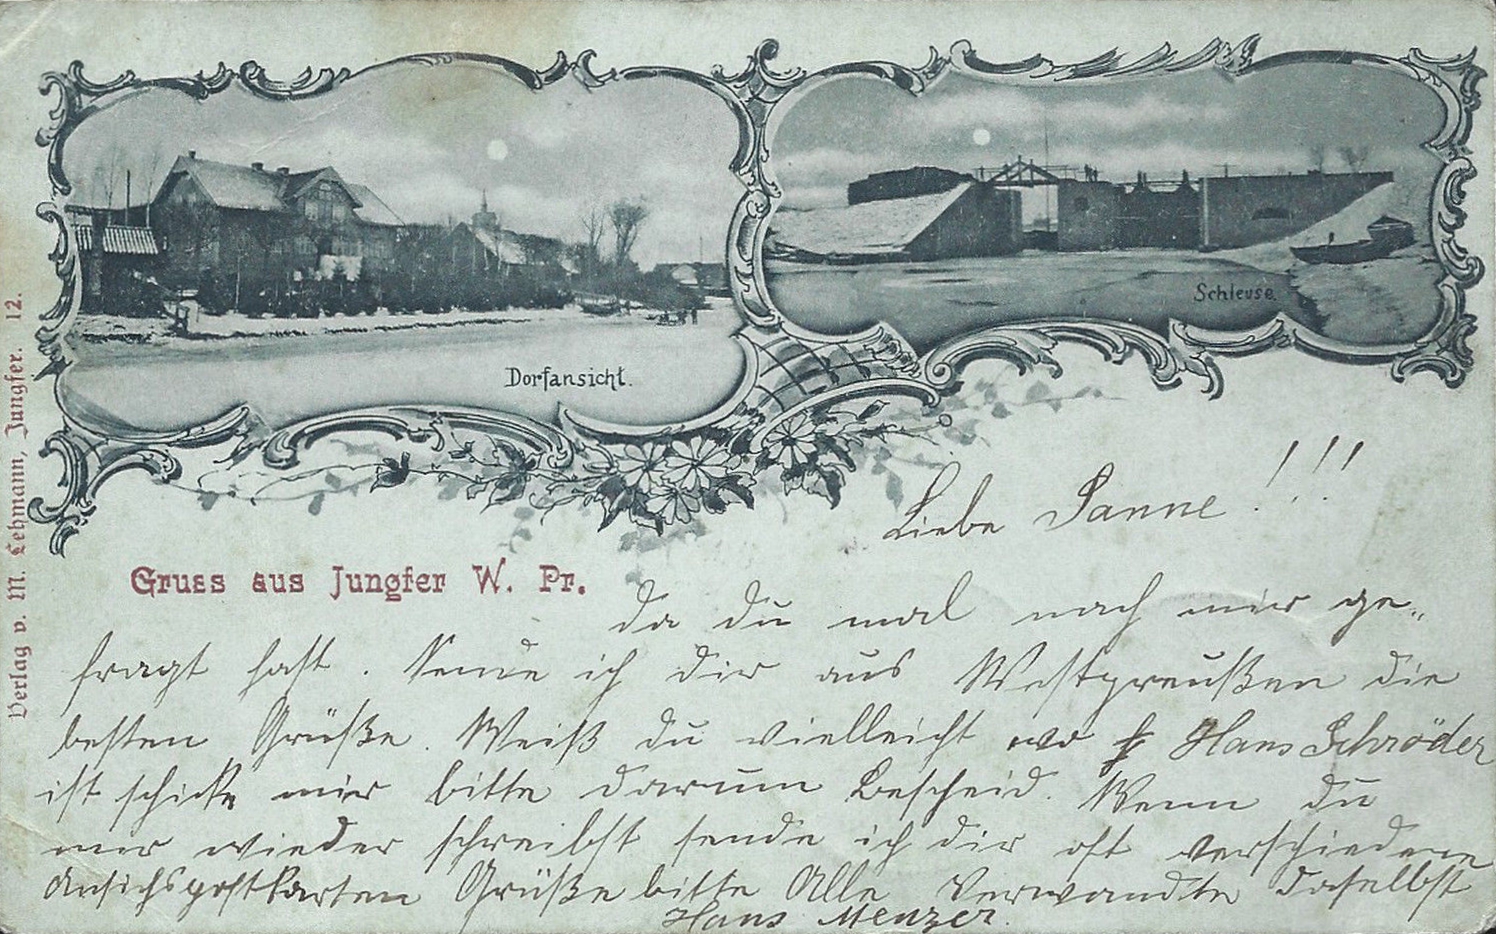 Dorfansicht.
Schleuse.
Verlag v. M. Lehmann, Jungfer. 12.
Gruss aus Jungfer W. Pr.
Liebe Sanne!!!
Da du mal nach mir ge-
fragt hast. Sende ich dir aus Westpreußen die
besten Grüße. Weiß du vielleicht wo Hans Schröder
ist schicke mir bitte darum Bescheid. Wenn du
mir wieder schreibst sende ich dir oft verschiedene
Ansichspostkarten Grüße bitte Alle Verwandte daselbst
Hans Menzer.